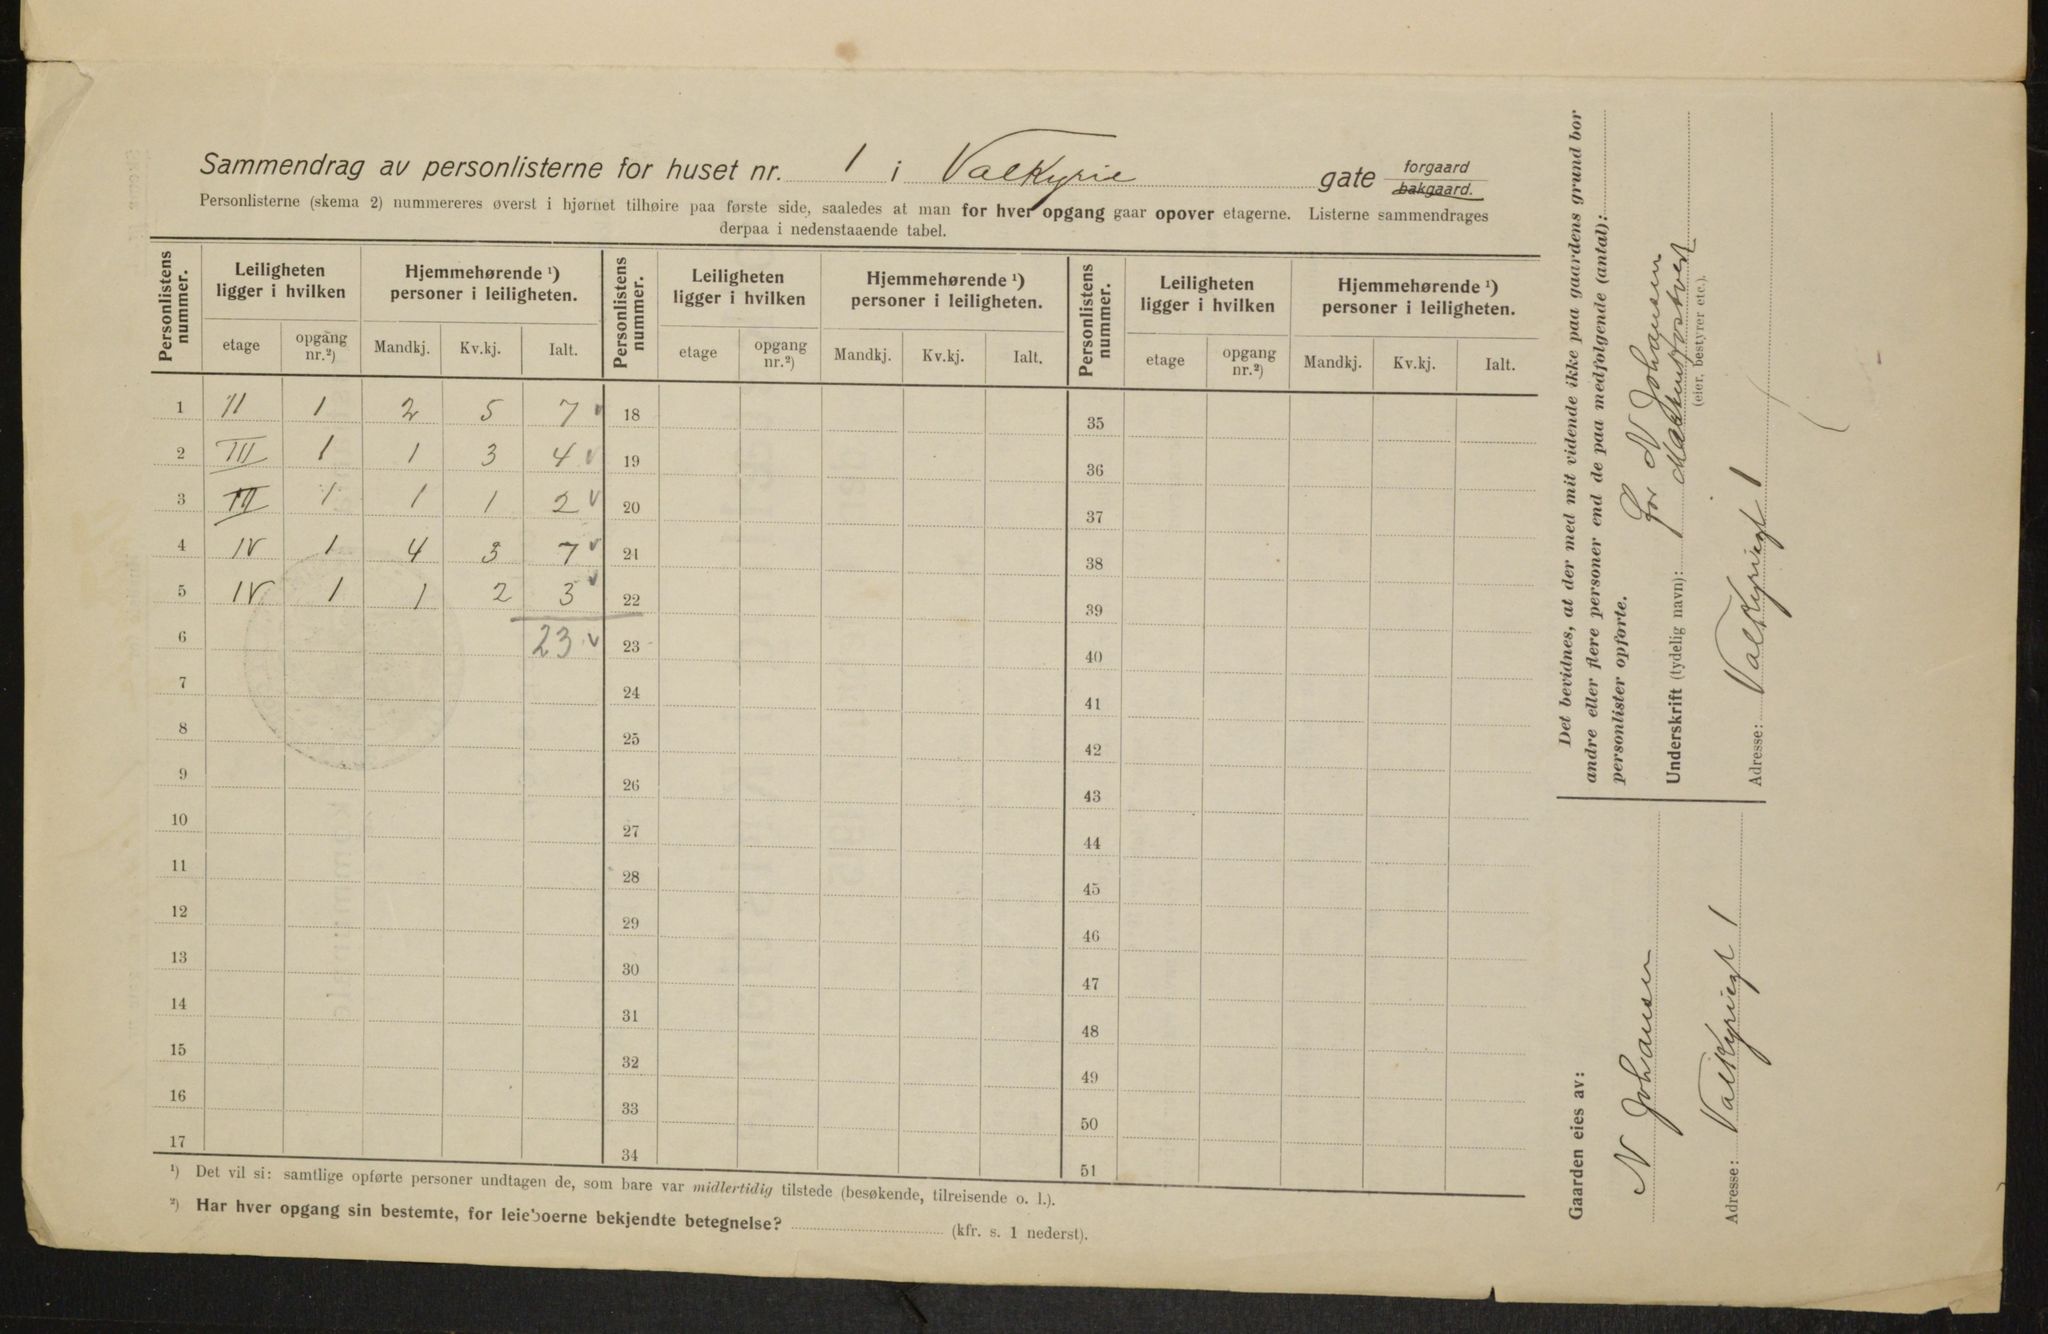 Sammendrag av personlisterne for huset nr. 1 i Valkyrie gate forgaard
bakgaard.
Personlisterne (skema 2) nummereres øverst i hjørnet tilhøire paa første side, saaledes at man for hver opgang gaar opover etagerne. Listerne sammendrages
derpaa i nedenstaaende tabel.
Personlistens nummer. Leiligheten ligger i hvilken Hjemmehørende ¹) personer i leiligheten. Personlistens nummer. Leiligheten ligger i hvilken Hjemmehørende ¹) personer i leiligheten. Personlistens nummer. Leiligheten ligger i hvilken Hjemmehørende ¹) personer i leiligheten.
etage opgang nr.²) Mandkj. Kv.kj. Ialt. etage opgang nr.²) Mandkj. Kv.kj. Ialt. etage opgang nr.²) Mandkj. Kv.kj. Ialt.
1 II 1 2 5 7 18 35
2 III 1 1 3 4 19 36
3 III 1 1 1 2 20 37
4 IV 1 4 3 7 21 38
5 IV 1 1 2 3 22 39
6 23 23 40
7 24 41
8 25 42
9 26 43
10 27 44
11 28 45
12 29 46
13 30 47
14 31 48
15 32 49
16 33 50
17 34 51
¹) Det vil si: samtlige opførte personer undtagen de, som bare var midlertidig tilstede (besøkende, tilreisende o. l.).
²) Har hver opgang sin bestemte, for leieboerne bekjendte betegnelse? (kfr. s. 1 nederst).
Det bevidnes, at der med mit vidende ikke paa gaardens grund bor
andre eller flere personer end de paa medfølgende (antal):
personlister opførte.
for N Johansen
Underskrift (tydelig navn):
(eier, bestyrer etc.).
Adresse: Valkyriegt 1
Gaarden eies av:
N Johansen
Adresse: Valkyriegt 1